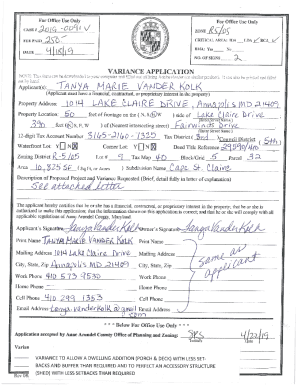 For Office Use Only
CASE # 2019-0091-V
FEE PAID 250-
DATE 4/18/19
For Office Use Only
ZONE R5/05
CRITICAL AREA: IDA LDA RCA
BMA: Yes No
NO. OF SIGNS 2
VARIANCE APPLICATION
Applicant(s): TANYA MARIE VANDER KOLK
(Applicant must have a financial, contractual, or proprietary interest in the property)
Property Address: 1014 LAKE CLAIRE DRIVE, Annapolis MD 21409
Property Location: 50 feet of frontage on the (N) s, e, w side of Lake Claire Drive
390 feet (N, s, e, w) of (Nearest intersecting street) Fairwinds Drive
12-digit Tax Account Number 3165-2160-1350 Tax District 3rd Council District 5th
Waterfront Lot: Y N Corner Lot: Y N Deed Title Reference
Zoning District R-5/05 Lot # 7 Tax Map 40 Block/Grid 5 Parcel 32
Area 10,835 SF (Sq Ft or Acres) Subdivision Name Cape St. Claire
Description of Proposed Project and Variance Requested (Brief, detail fully in letter of explanation)
See attached letter
The applicant hereby certifies that he or she has a financial, contractual, or proprietary interest in the property; that he or she is
authorized to make this application; that the information shown on this application is correct; and that he or she will comply with all
applicable regulations of Anne Arundel County, Maryland
Applicant's Signature Tanya VanderKolk Owner's Signature Tanya VanderKolk
Print Name TANYA MARIE VANDER KOLK Print Name
Mailing Address 1014 Lake Claire Drive Mailing Address same as
City, State, Zip Annapolis MD 21409 City, State, Zip applicant
Work Phone 410 573-9530 Work Phone
Home Phone Home Phone
Cell Phone 410 299 1353 Cell Phone
Email Address tanya.vanderkolk@gmail.com Email Address
*** Below For Office Use Only ***
Application accepted by Anne Arundel County Office of Planning and Zoning: 4/22/19
Initials Date
Varian
VARIANCE TO ALLOW A DWELLING ADDITION (PORCH & DECK) WITH LESS SET-
BACKS AND BUFFER THAN REQUIRED AND TO PERFECT AN ACCESSORY STRUCTURE
(SHED) WITH LESS SETBACKS THAN REQUIRED